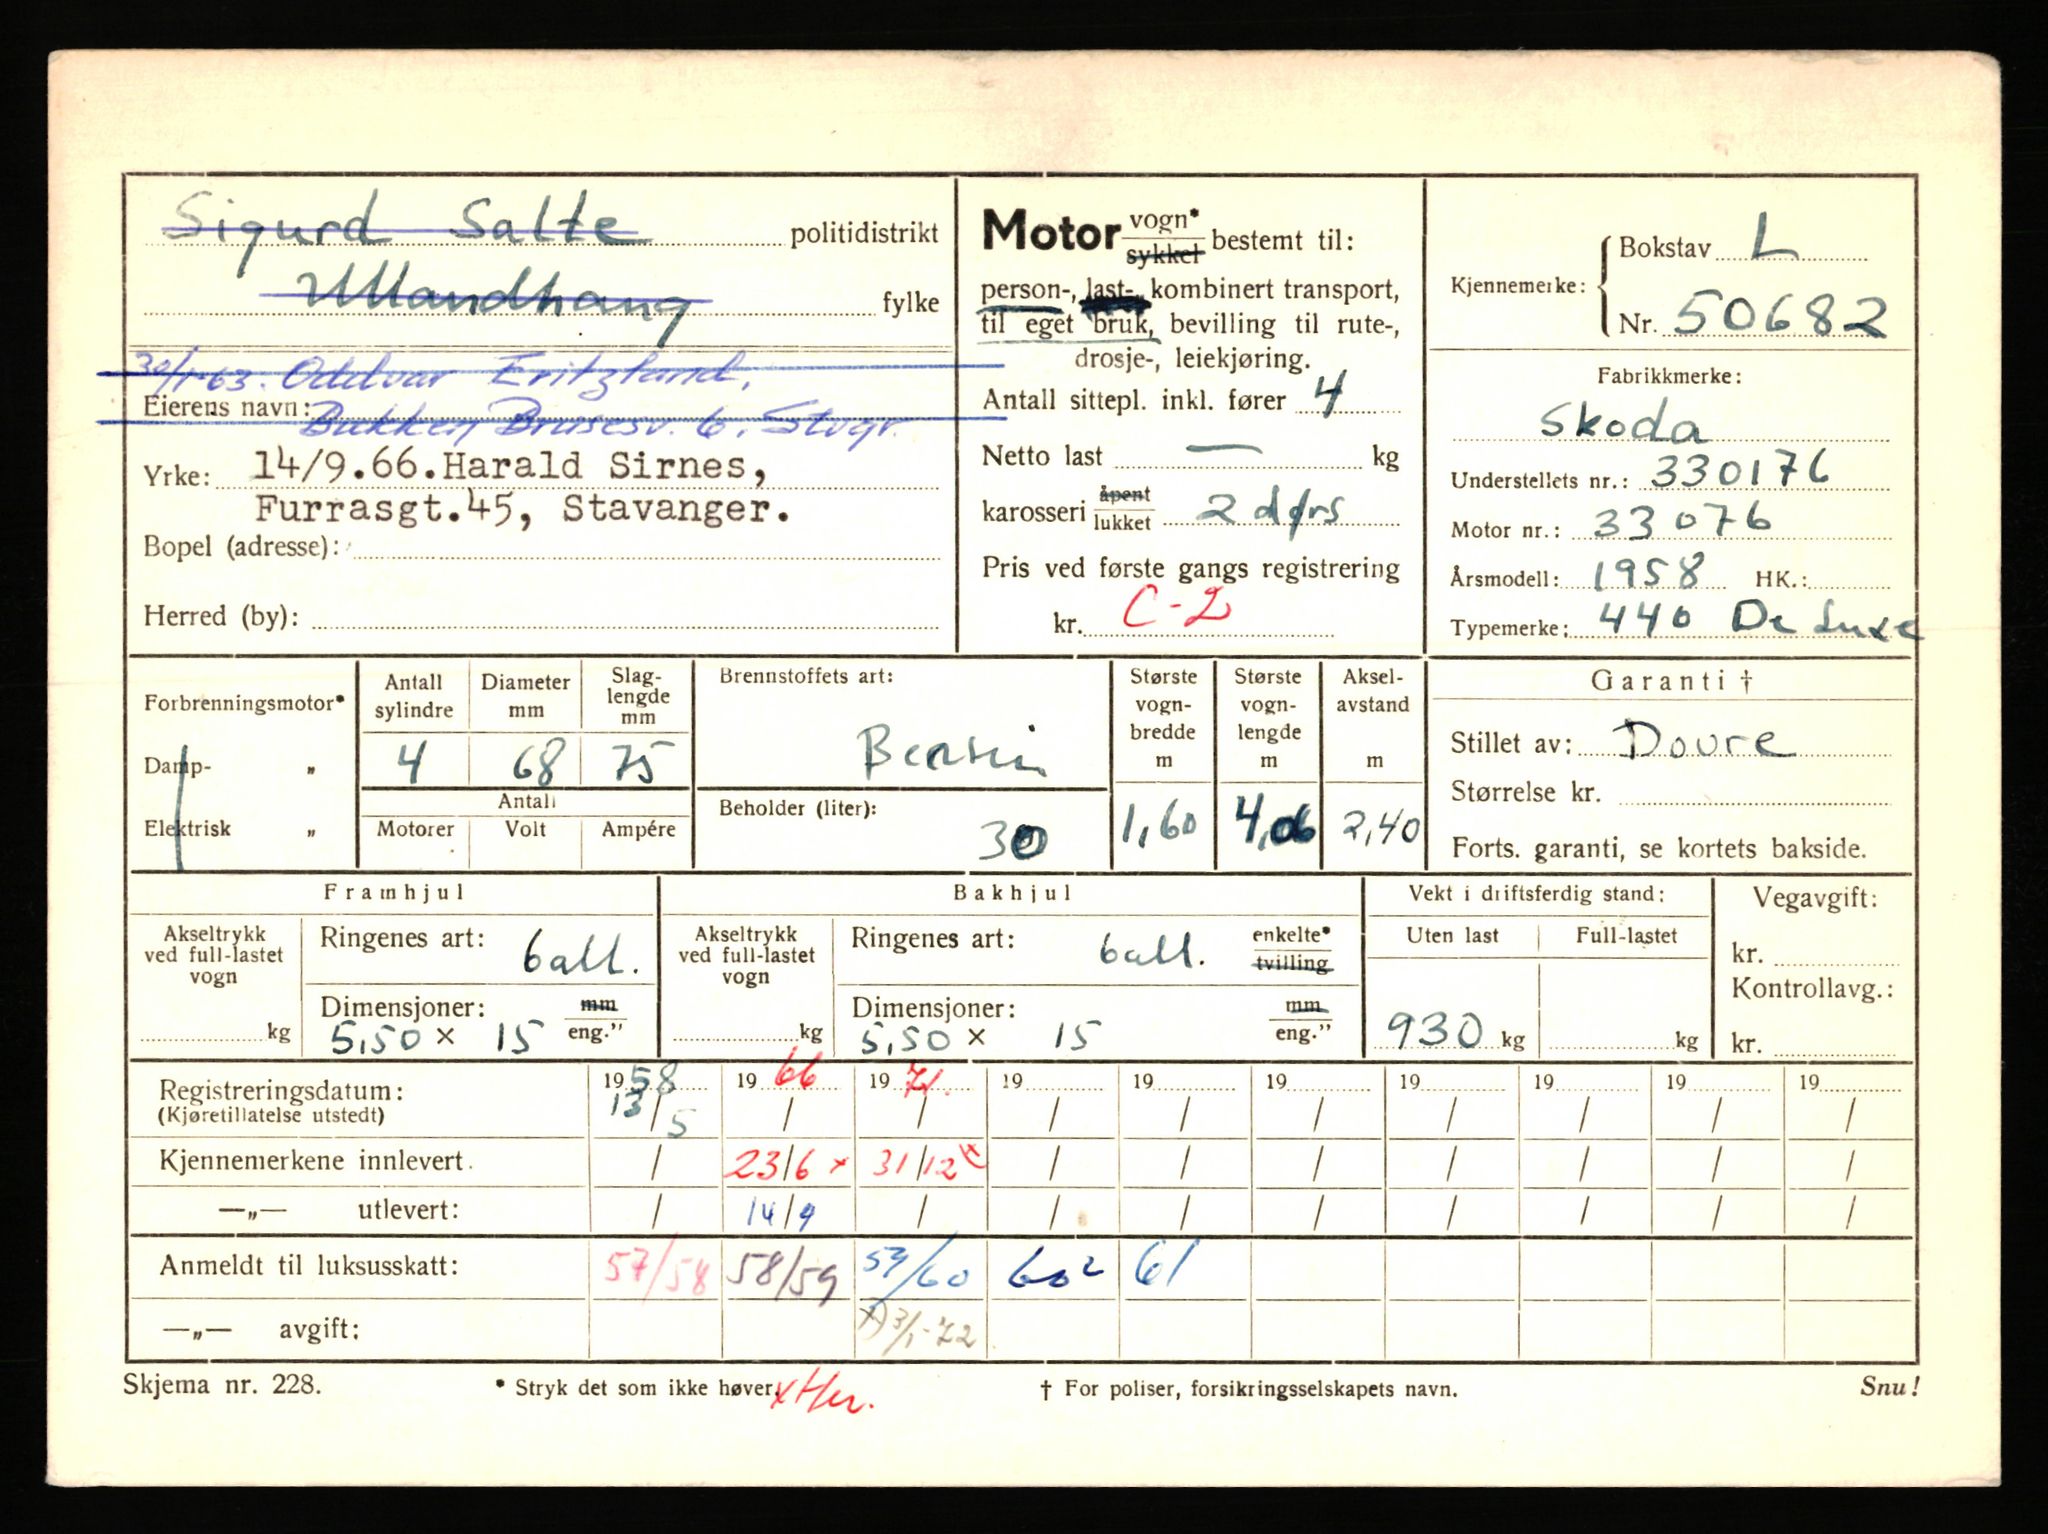 Sigurd Salte politidistrikt
Ullandhaug fylke
30/1-63. Oddvar Eritzland,
Eierens navn:
Bukken Brusesv. 6, Stvgr.
Yrke: 14/9.66.Harald Sirnes,
Furrasgt.45, Stavanger.
Bopel (adresse):
Herred (by):
Motor vogn* sykkel bestemt til:
person-, last-, kombinert transport,
til eget bruk, bevilling til rute-,
drosje-, leiekjøring.
Antall sittepl. inkl. fører 4
Netto last — kg
karosseri åpent lukket 2 dørs
Pris ved første gangs registrering
kr. C-2
Kjennemerke: Bokstav L
Nr. 50682
Fabrikkmerke:
Skoda
Understellets nr.: 330176
Motor nr.: 33076
Årsmodell: 1958 HK.:
Typemerke: 440 De Luxe
Forbrenningsmotor*
Damp- „
Elektrisk „
Antall sylindre 4
Diameter mm 68
Slag-lengde mm 75
Antall
Motorer Volt Ampére
Brennstoffets art:
Bensin
Beholder (liter):
30
Største vogn-bredde m 1,60
Største vogn-lengde m 4,06
Aksel-avstand m 2,40
Garanti †
Stillet av: Dovre
Størrelse kr.
Forts. garanti, se kortets bakside.
Framhjul
Akseltrykk ved full-lastet vogn kg
Ringenes art: ball.
Dimensjoner: mm
5,50 x 15 eng.”
Bakhjul
Akseltrykk ved full-lastet vogn kg
Ringenes art: ball. enkelte* tvilling
Dimensjoner: mm
5,50 x 15 eng.”
Vekt i driftsferdig stand:
Uten last Full-lastet
930 kg kg
Vegavgift:
kr.
Kontrollavg.:
kr.
Registreringsdatum: 1958 1966 1971. 19 19 19 19 19 19 19
(Kjøretillatelse utstedt) 13/5 / / / / / / / / /
Kjennemerkene innlevert. / 23/6 x 31/12 x / / / / / / /
—„— utlevert: / 14/9 / / / / / / / /
Anmeldt til luksusskatt: 57/58 58/59 59/60 602 61
—„— avgift: x) 3/1-72
Skjema nr. 228. * Stryk det som ikke høver. † For poliser, forsikringsselskapets navn. Snu!